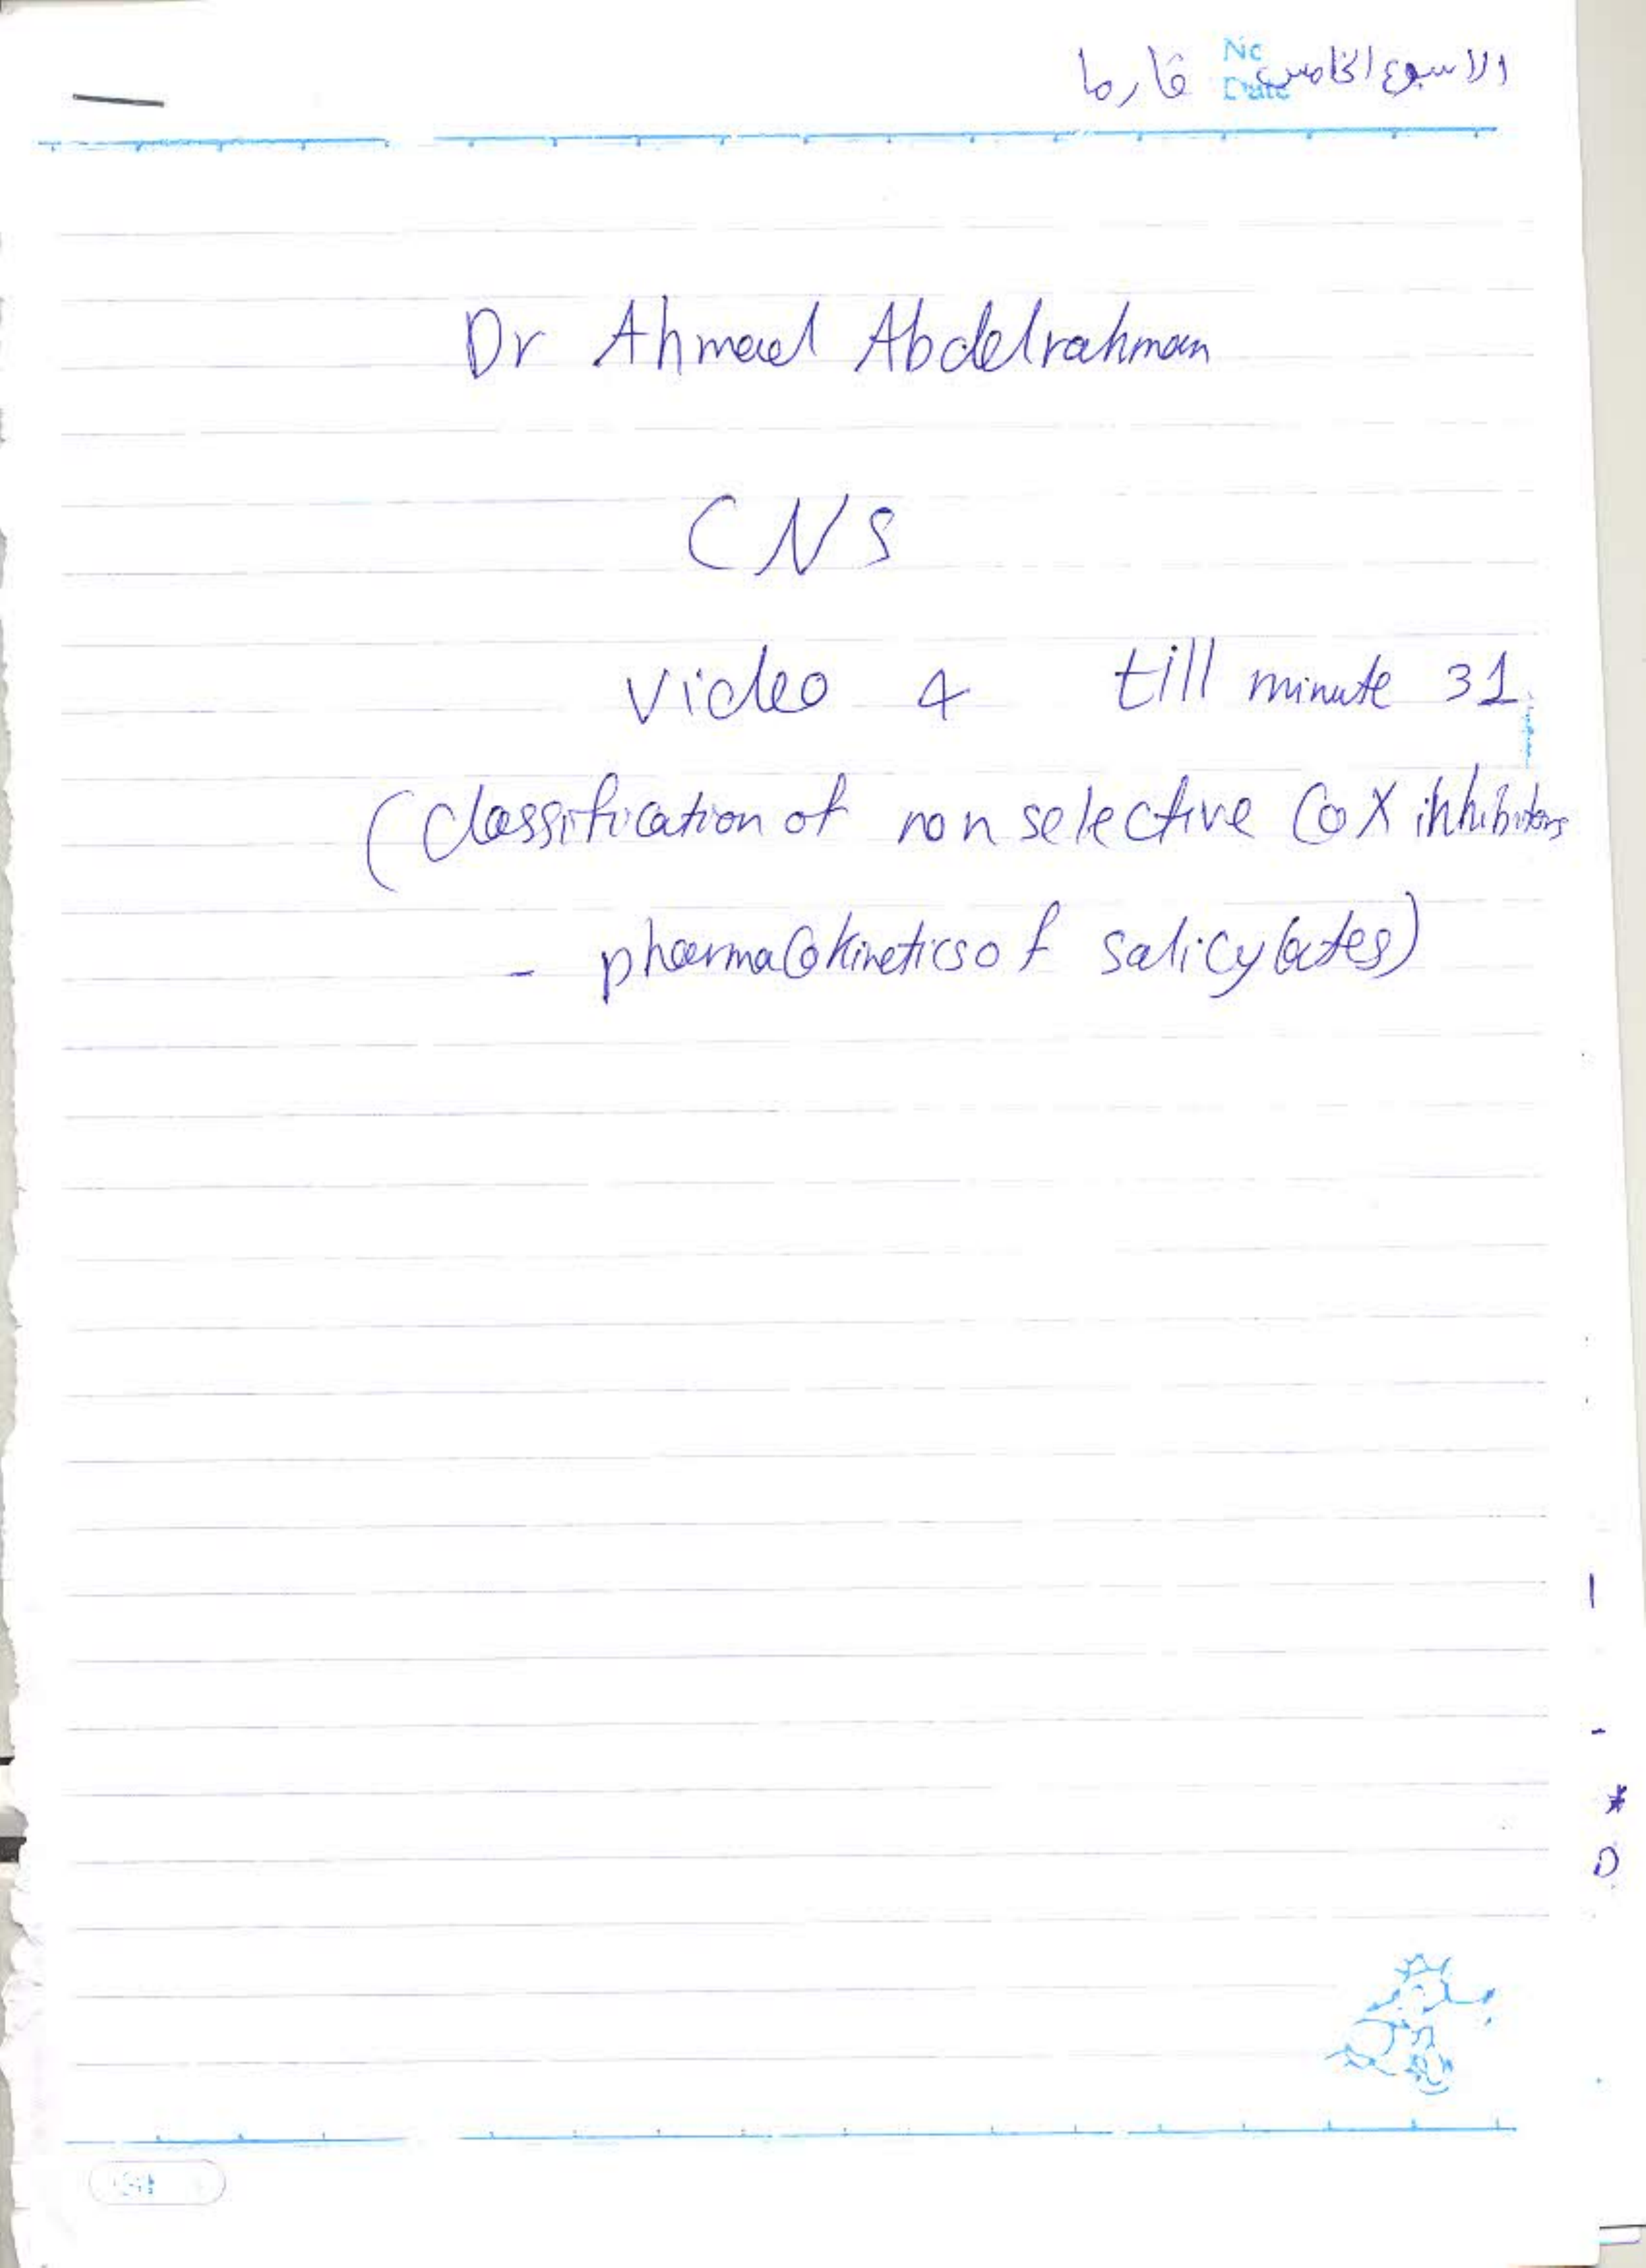 الاسبوع الخامس فارما
No
Date
Dr Ahmed Abdelrahman
CNS
video 4 till minute 31
(Classification of non selective COX inhibitors
- pharmacokinetics of salicylates)